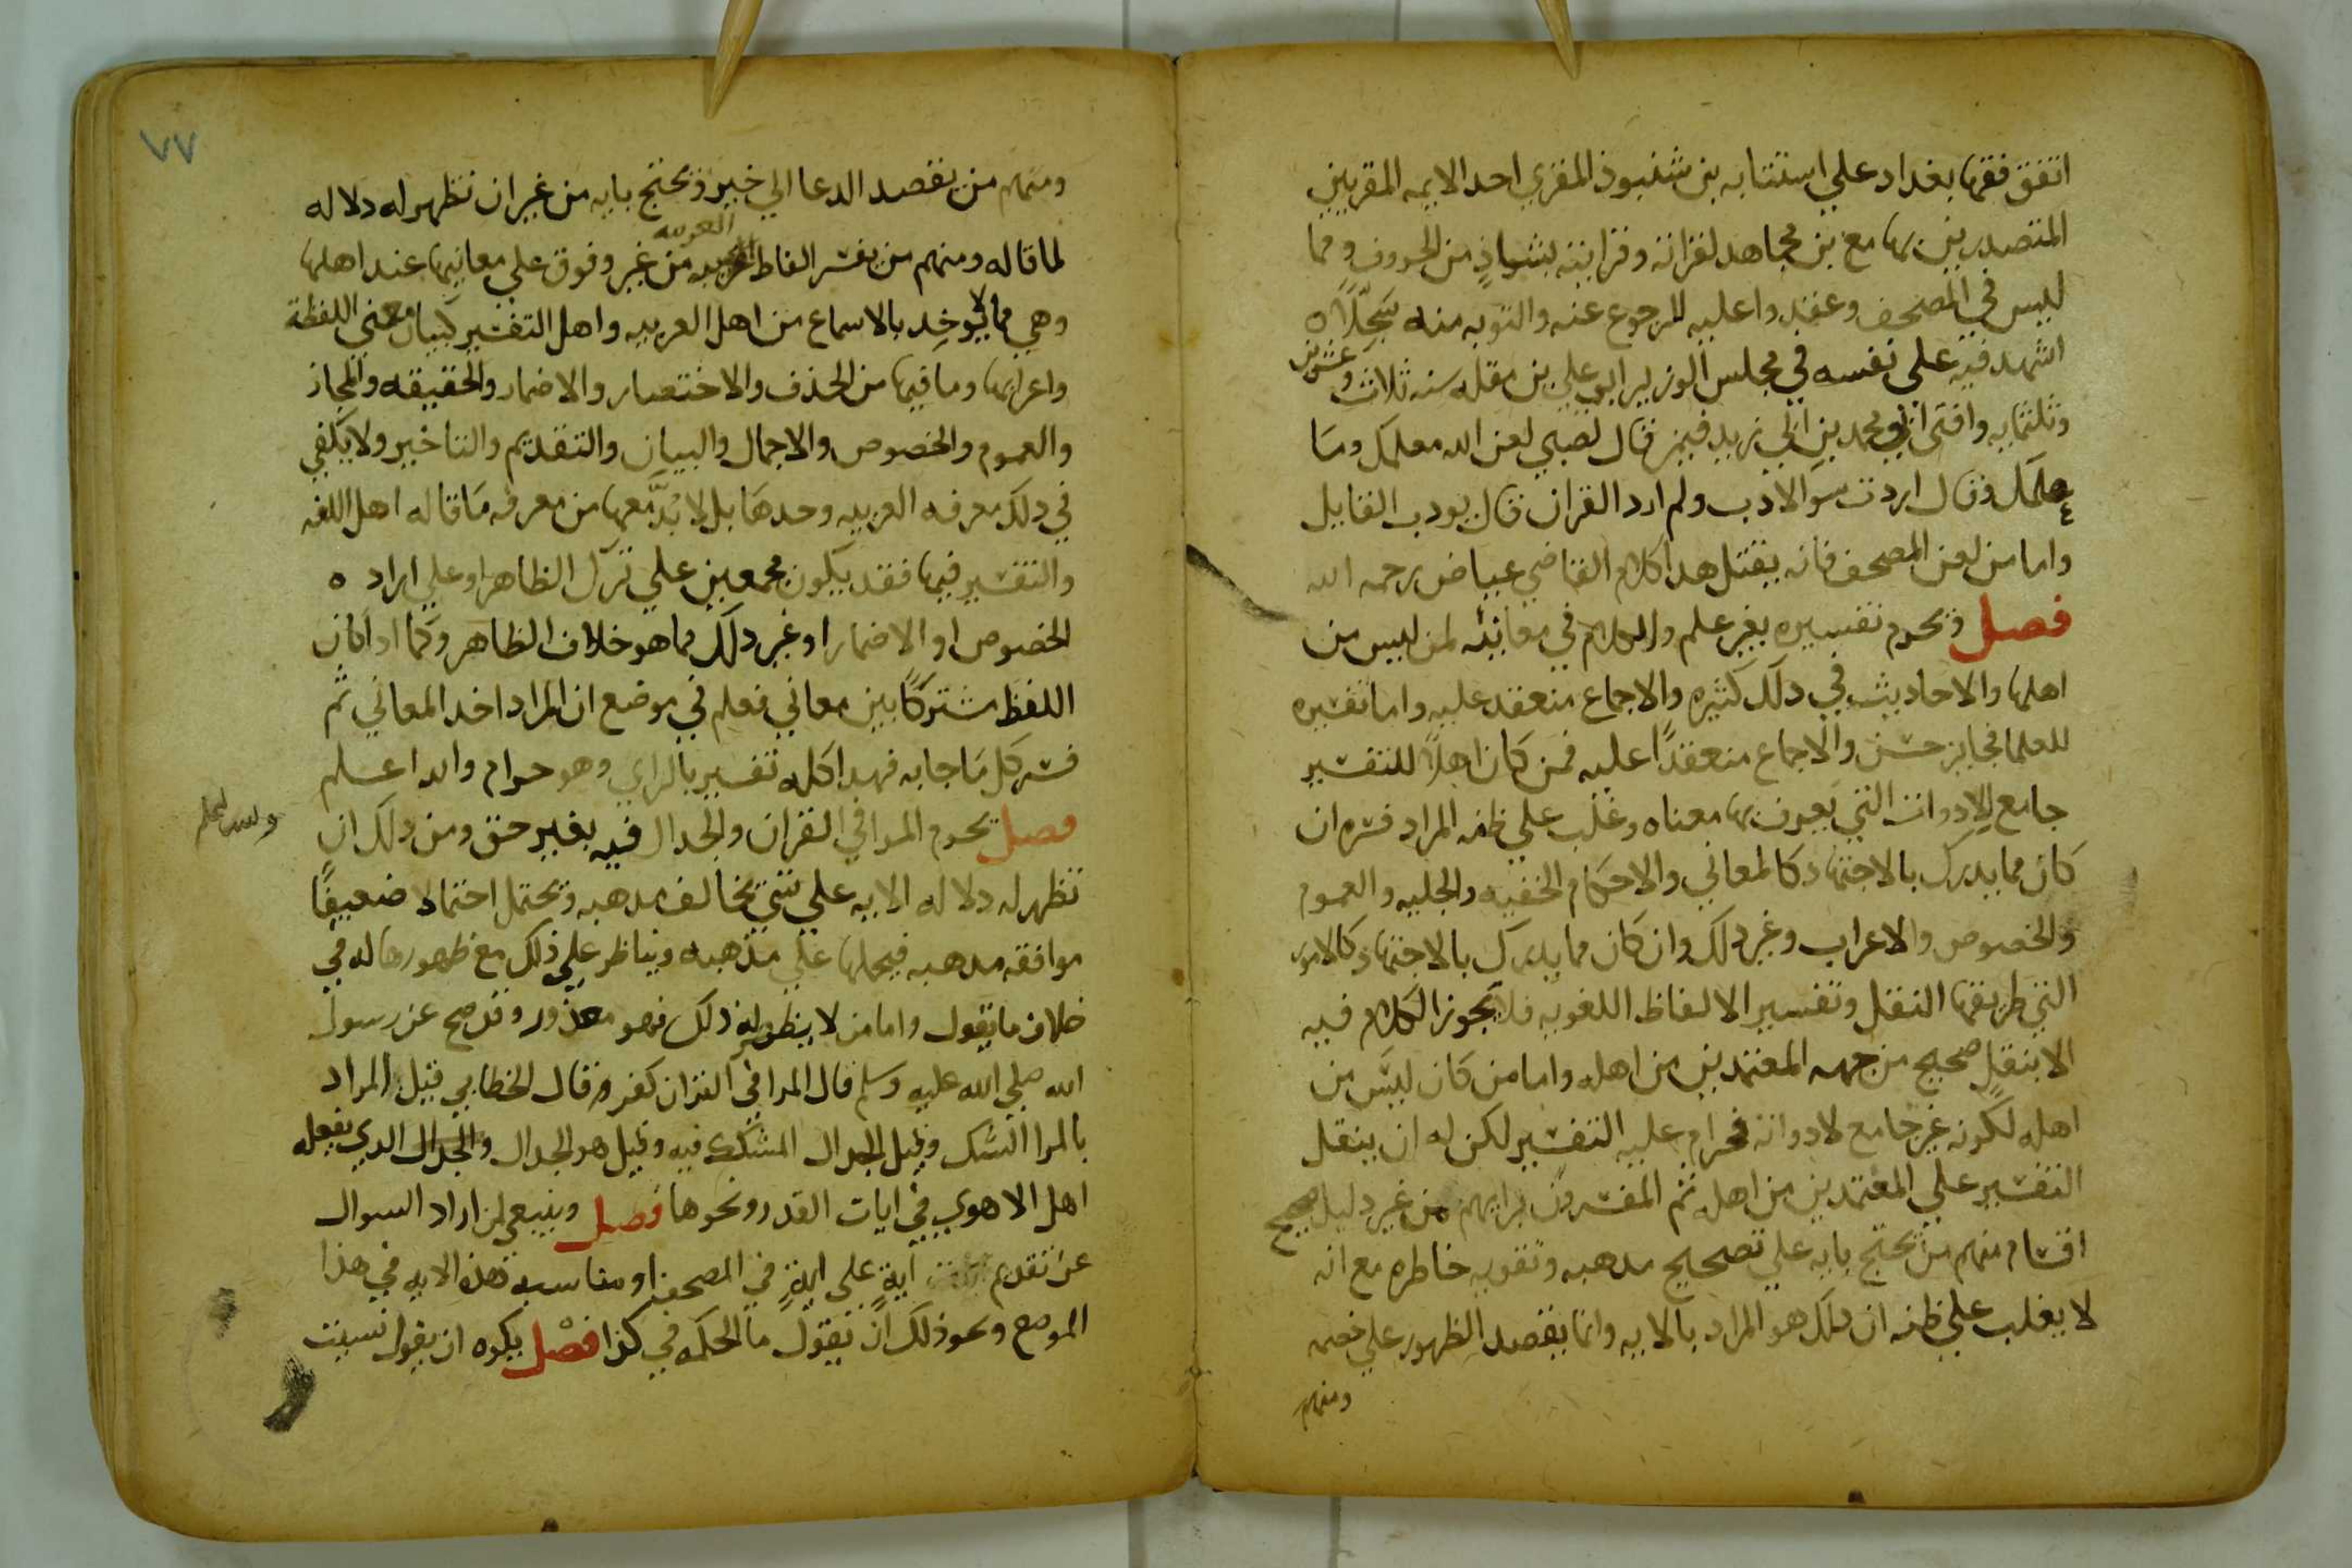 اتفق فقها بغداد علي استتابه بن شنبوذ المقري احد الايمه المقريين
المتصدرين بها مع بن مجاهد لقراته وقراينه بشواذٍ من الحروف ومما
ليس في المصحف وعقدوا عليه للرجوع عنه والتوبه منه سَجِلّاً ه
اشهد فيه علي نفسه في مجلس الوزير ابو علي بن مقله سنه ثلاث وعشرين
وثلثمايه وافتي ابو محمد بن ابي زيد فيمن قال لصبي لعن الله معلمك وما
علمك وقال اردت سوالادب ولم ارد القران قال يودب القايل
واما من لعن المصحف فانه يقتل هدا كلام القاضي عياض رحمه الله
فصل ويحرم تفسيره بغير علم والكلام في معانيه لمن ليس من
اهلها والاحاديث في دلك كثيره والاجماع منعقد عليه واما تفسيره
للعلما فجايز حسن والاجماع منعقدًا عليه فمن كان اهلاً للتفسير
جامع للادوات التي يعرف بها معناه وغلب علي ظنه المراد فسره ان
كان مما يدرك بالاجتهاد كالمعاني والاحكام الخفيه والجليه والعموم
والخصوص والاعراب وغير دلك وان كان مما يدرك بالاجتهاد كالامور
التي طريقها النقل وتفسير الالفاظ اللغويه فلا يجوز الكلام فيه
الا بنقلٍ صحيح من جهه المعتمدين من اهله واما من كان ليس من
اهله لكونه غير جامع لادواته فحرام عليه التفسير لكن له ان ينقل
التفسير علي المعتمدين من اهله ثم المفسرون برايهم من غير دليل صحيح
اقسام منهم من يحتج بايه علي تصحيح مدهبه وتقويه خاطره مع انه
لا يغلب علي ظنه ان دلك هو المراد بالايه وانما يقصد الظهور علي خصمه
ومنهم
٧٧
ومنهم من يقصد الدعا الي خير ويحتج بايه من غير ان تظهر له دلاله
لما قاله ومنهم من يفسر الفاظ العربيه من غير وقوف علي معانيها عند اهلها
وهي مما لا يوخد بالاسماع من اهل العربيه واهل التفسير كبيان معني اللفظة
واعرابها وما فيها من الحذف والاختصار والاضمار والحقيقه والمجاز
والعموم والخصوص والاجمال والبيان والتقديم والتاخير ولا يكفي
في دلك معرفه العربيه وحدها بل لا بدَّ معها من معرفه ما قاله اهل اللغه
والتفسير فيها فقد يكون مجمعين علي ترك الظاهر او علي اراد ه
الخصوص او الاضمار او غير دلك مما هو خلاف الظاهر وكما ادا كان
اللفظ مشتركًا بين معاني فعلم في موضع ان المراد احد المعاني ثم
فسر كل ما جا به فهدا كله تفسير بالراي وهو حرام والله اعلم
فصل يحرم المرا في القران والجدال فيه بغير حق ومن دلك ان
تظهر له دلاله الايه علي شي يخالف مدهبه ويحتمل احتمالا ضعيفًا
موافقه مدهبه فيحملها علي مذهبه ويناظر علي ذلك مع ظهورها له في
خلاف ما يقول واما من لا يظهر له ذلك فهو معذور وقد صح عن رسول
الله صلي الله عليه وسلم قال المرا في القران كفر قال الخطابي قيل المراد
بالمرا الشك وقيل الجدال المشكك فيه وقيل هو الجدال والجدال الدي يفعله
اهل الاهوي في ايات القدر ونحوها فصل وينبغي لمن اراد السوال
عن تقدم آيةٍ علي ايةٍ في المصحف او مناسبه هذه الايه في هذا
الموضع ونحو ذلك ان يقول ما الحكمه في كذا فصل يكره ان يقول نسيت